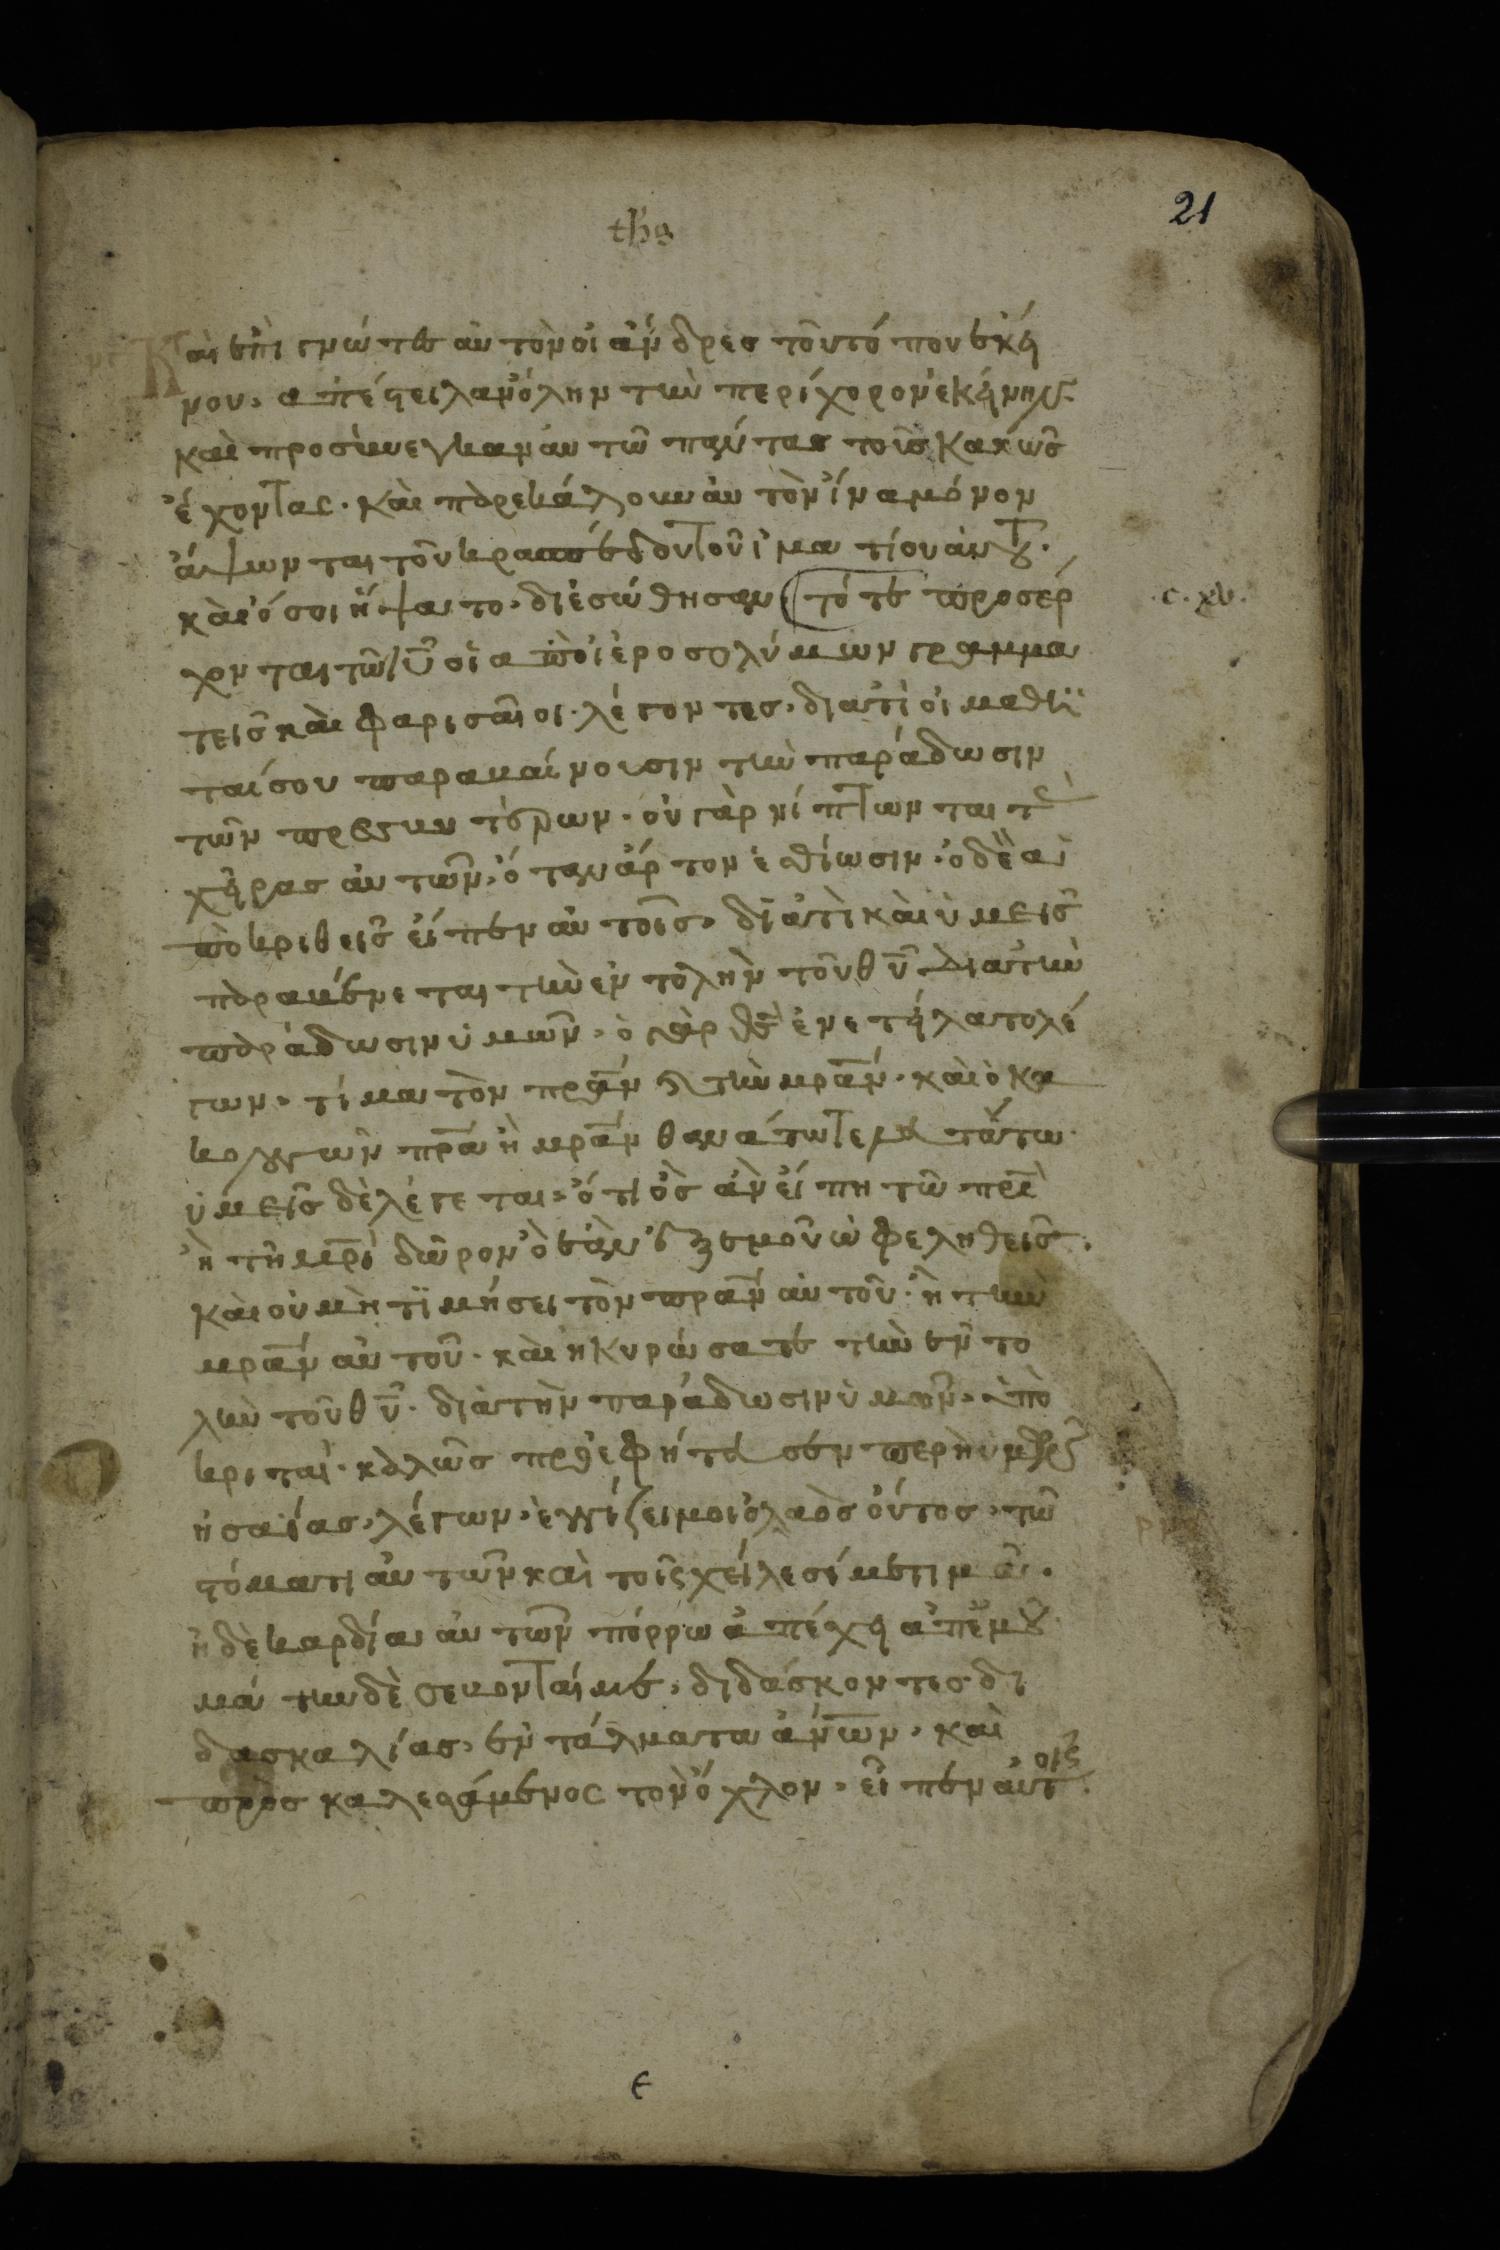 21
ths
Και επιγνώντες αυτὸν οἱ ἄνδρες τοῦ τόπου ἐκεί
νου, ἀπέστειλαν ὅλην τὴν περίχορον ἐκείνην.
καὶ προσήνεγκαν αὐτῶ πάντας τοὺς κακῶς
ἔχοντας. καὶ παρεκάλουν αὐτὸν ἵνα μόνον
ἅψωνται τοῦ κρασπέδου τοῦ ἱματίου αὐτοῦ.
καὶ ὅσοι ἥψαντο, διεσώθησαν. τότε προσέρ
χονται τῶ ιῦ οἱ ἀπὸ ἱεροσολύμων γραμμα
τεῖς καὶ φαρισαῖοι. λέγοντες, διατὶ οἱ μαθη
ταί σου παραβαίνουσιν τὴν παράδωσιν
τῶν πρεσβυτέρων. οὐ γὰρ νίπτωνται τὰς
χεῖρας αὐτῶν, ὅταν ἄρτον ἐσθίωσιν. ὁ δὲ ἀ
ποκριθεὶς εἶπεν αὐτοῖς, διατὶ καὶ ὑμεῖς
παραβένεται τὴν ἐντολὴν τοῦ θῦ διὰ τὴν
παράδωσιν ὑμῶν. ὁ γὰρ θς ἐνετείλατο λέ
γων, τίμα τὸν πρᾱν καὶ τὴν μρᾱν. καὶ ὁ κα
κολογῶν πρᾱ ἢ μρᾱν θανάτω τελευτάτω.
ὑμεῖς δὲ λέγεται, ὅτι ὃς ἂν εἴπη τῶ πρῑ
ἢ τῆ μρῑ δῶρον ὃ ἐὰν ἐξ ἐμοῦ ὠφεληθεῖς.
καὶ οὐ μὴ τιμήσει τὸν πρᾱν αὐτοῦ. ἢ τὴν
μρᾱν αὐτοῦ. καὶ ἠκυρώσατε τὴν ἐντο
λὴν τοῦ θῦ. διὰ τὴν παράδωσιν ὑμῶν. ὑπο
κριταί. καλῶς προεφήτευσεν περὶ ὑμῶν
ἡσαΐας, λέγων, ἐγγίζει μοι ὁ λαὸς οὗτος, τῶ
στόματι αὐτῶν καὶ τοῖς χείλεσί με τιμᾶ.
ἡ δὲ καρδία αὐτῶν πόρρω ἀπέχει ἀπ' ἐμοῦ
μάτην δὲ σέβονταί με, διδάσκοντες δι
δασκαλίας, ἐντάλματα ἀνων. καὶ
προσκαλεσάμενος τὸν ὄχλον, εἶπεν αὐτοῖς.
.c.xv.
ε